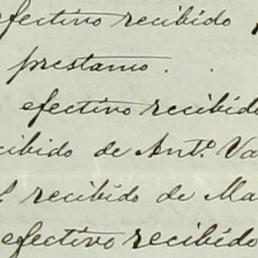 efectivo recibido
prestamo . .
efectivo recibido
recibido de Ant.º Va
recibido de Ma
efectivo recibido